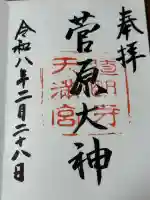 奉拝
菅原大神
天満宮
令和八年二月二十八日